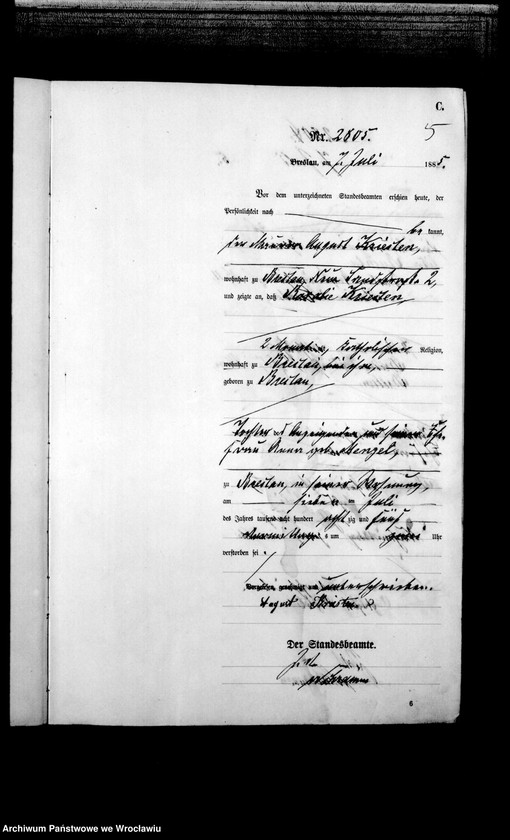 C.
Nr. 2805.
5
Breslau, am 7. Juli 1885.
Vor dem unterzeichneten Standesbeamten erschien heute, der
Persönlichkeit nach
be kannt,
der Maurer August Kriesten,
wohnhaft zu Breslau, Neue 2,
und zeigte an, daß Kriesten,
2 katholischer Religion,
wohnhaft zu Breslau, bei ihm,
geboren zu Breslau,
Tochter des Anzeigenden und seiner Ehe-
frau Anna geb. Menzel,
zu Breslau, in seiner Wohnung,
am sieben ten Juli
des Jahres tausend acht hundert acht zig und fünf
Vormittags um Uhr
verstorben sei.
Vorgelesen, genehmigt und unterschrieben.
August
Der Standesbeamte.
6
Archiwum Państwowe we Wrocławiu